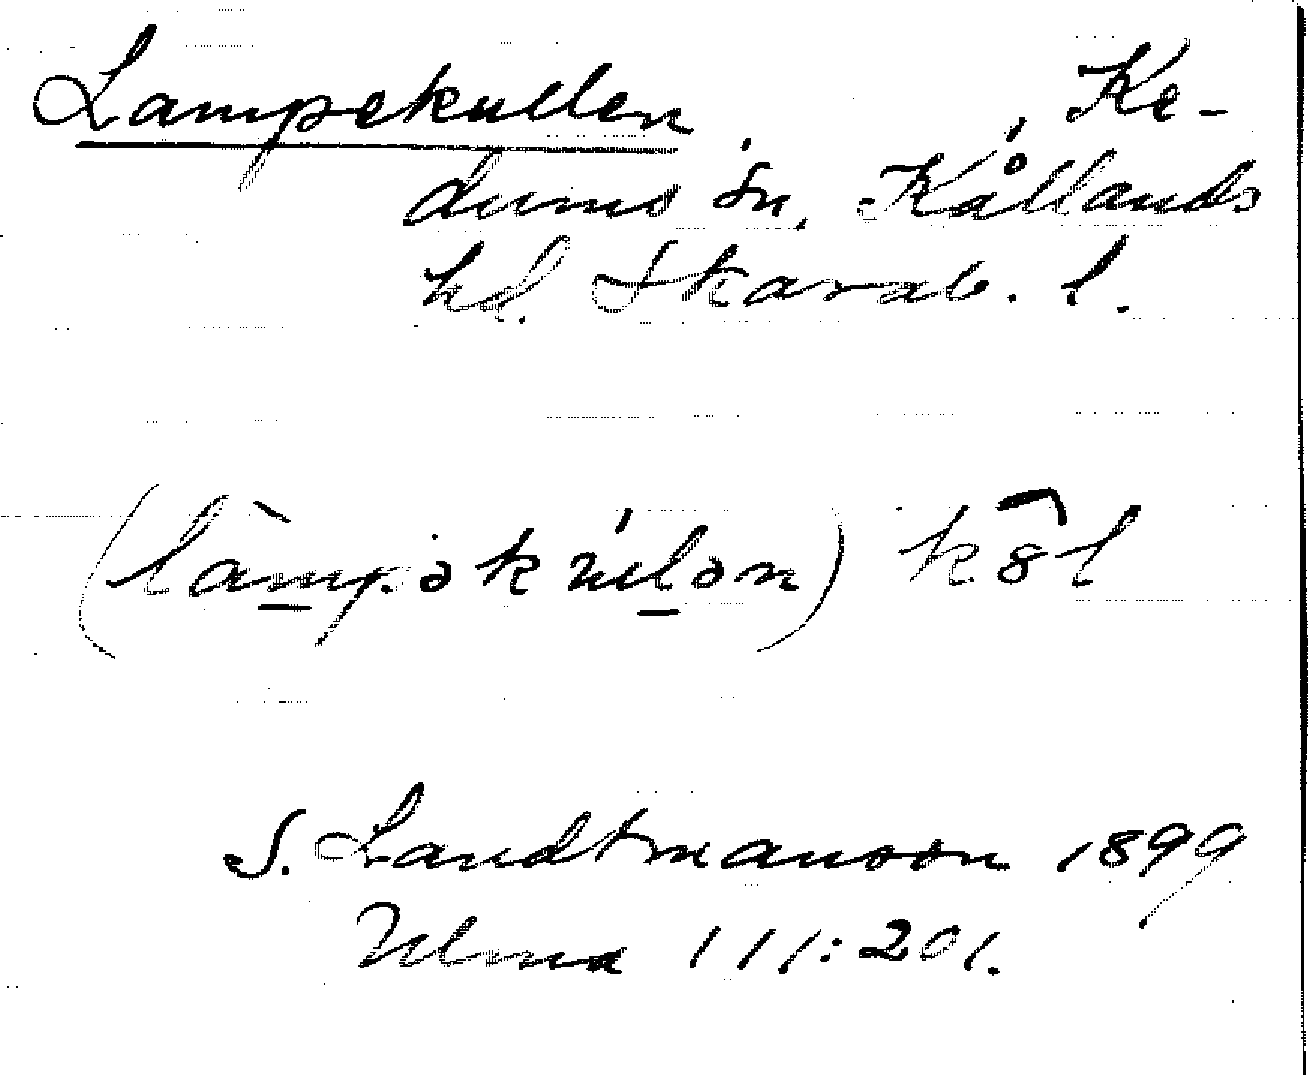 Lampekullen, Ke-
dums sn, Kållands
hd. Skarab. l.
(làmpəkúlən)
S. Landtmanson 1899
Ulma 111:201.